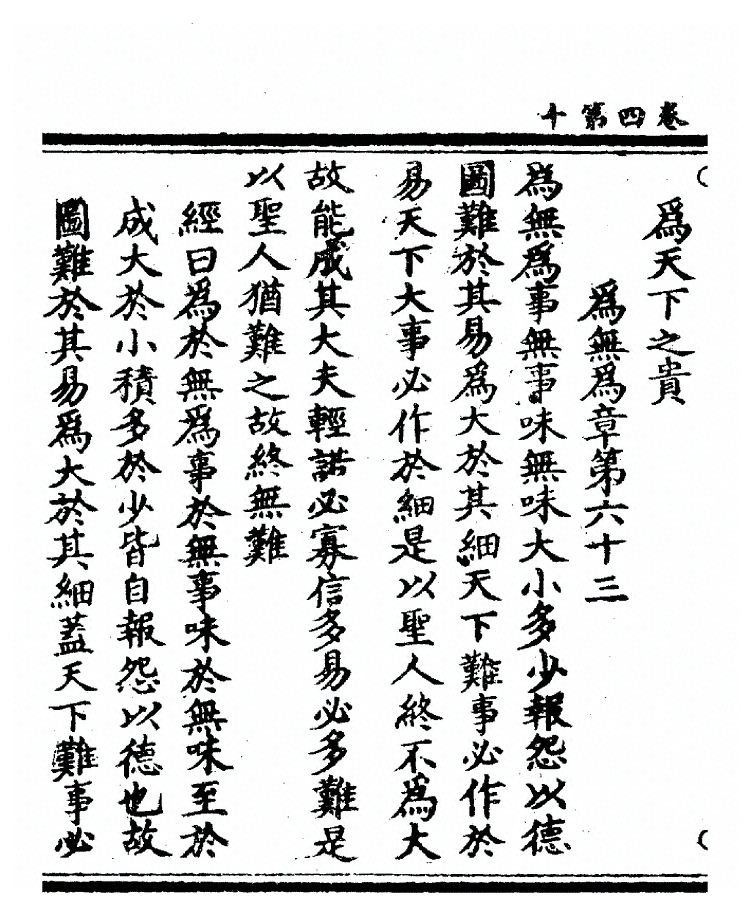 卷四第十
為天下之貴
為無為章第六十三
為無為事無事味無味大小多少報怨以德
圖難於其易為大於其細天下難事必作於
易天下大事必作於細是以聖人終不為大
故能成其大夫輕諾必寡信多易必多難是
以聖人猶難之故終無難
經曰為於無為事於無事味於無味至於
成大於小積多於少皆自報怨以德也故
圖難於其易為大於其細蓋天下難事必